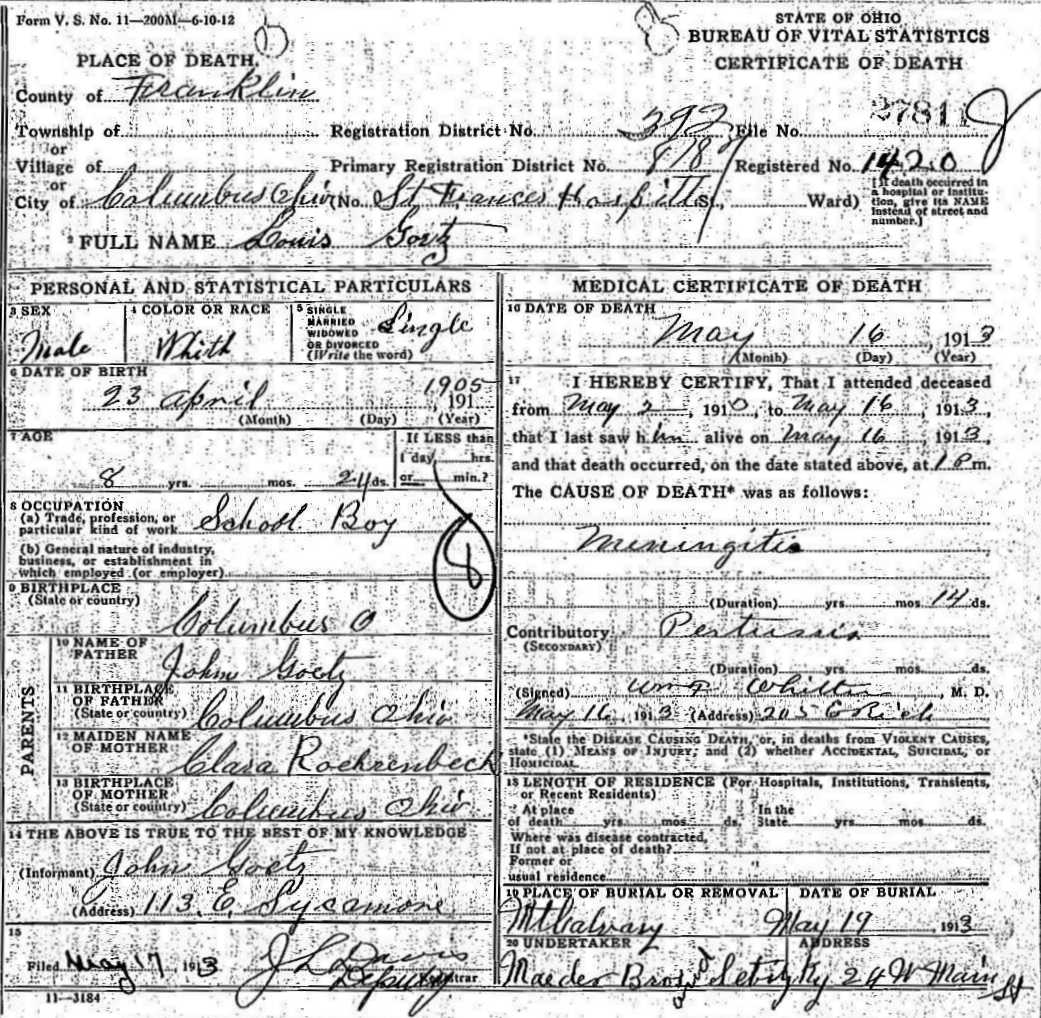 Form V. S. No. 11—200M—6-10-12
STATE OF OHIO
BUREAU OF VITAL STATISTICS
CERTIFICATE OF DEATH
PLACE OF DEATH.
County of Franklin
Township of
or
Village of
or
City of Columbus Ohio No. St Frances Hospittl St., Ward)
Registration District No. 392 File No. 27811
Primary Registration District No. 8187 Registered No. 1420
[If death occurred in
a hospital or institu-
tion, give its NAME
instead of street and
number.]
2 FULL NAME Louis Goetz
PERSONAL AND STATISTICAL PARTICULARS
3 SEX
Male
4 COLOR OR RACE
Whith
5 SINGLE
MARRIED
WIDOWED
OR DIVORCED
(Write the word)
Single
6 DATE OF BIRTH
23 April 1905
191
(Month) (Day) (Year)
7 AGE
8 yrs. mos. 24 ds.
If LESS than
1 day, hrs.
or min.?
8
8 OCCUPATION
(a) Trade, profession, or
particular kind of work School Boy
(b) General nature of industry,
business, or establishment in
which employed (or employer)
9 BIRTHPLACE
(State or country)
Columbus O
PARENTS
10 NAME OF
FATHER
John Goetz
11 BIRTHPLACE
OF FATHER
(State or country) Columbus Ohio
12 MAIDEN NAME
OF MOTHER
Clara Roehrenbeck
13 BIRTHPLACE
OF MOTHER
(State or country) Columbus Ohio
14 THE ABOVE IS TRUE TO THE BEST OF MY KNOWLEDGE
(Informant) John Goetz
(Address) 113 E. Sycamore
15
Filed May 17, 1913 J L Davis
Deputy Registrar
11—3184
MEDICAL CERTIFICATE OF DEATH
16 DATE OF DEATH
May 16, 1913
(Month) (Day) (Year)
17 I HEREBY CERTIFY, That I attended deceased
from May 2, 1913, to May 16, 1913,
that I last saw him alive on May 16, 1913,
and that death occurred, on the date stated above, at 1 P m.
The CAUSE OF DEATH* was as follows:
Miningitis
(Duration) yrs. mos. 14 ds.
Contributory Pertussis
(SECONDARY)
(Duration) yrs. mos. ds.
(Signed) Wm Whitten, M. D.
May 16, 1913 (Address) 205 E Rich
*State the DISEASE CAUSING DEATH, or, in deaths from VIOLENT CAUSES,
state (1) MEANS OF INJURY; and (2) whether ACCIDENTAL, SUICIDAL, or
HOMICIDAL
18 LENGTH OF RESIDENCE (For Hospitals, Institutions, Transients,
or Recent Residents)
At place
of death yrs. mos. ds.
In the
State yrs. mos. ds.
Where was disease contracted,
If not at place of death?
Former or
usual residence
19 PLACE OF BURIAL OR REMOVAL
Mt Calvary
DATE OF BURIAL
May 19 1913
20 UNDERTAKER
ADDRESS
Maeder Bros 24 W Main St